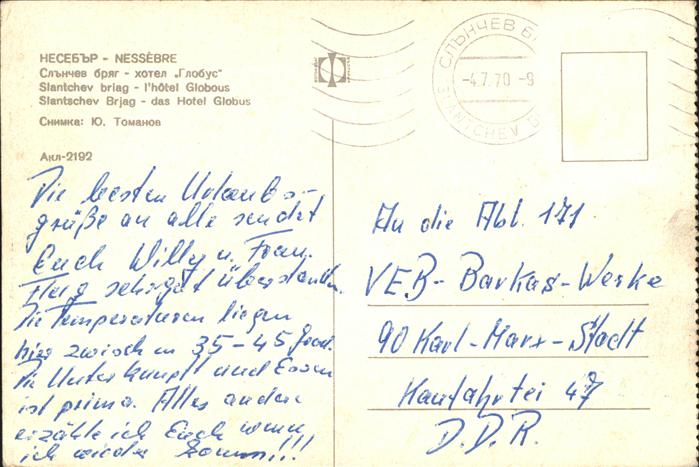 НЕСЕБЪР - NESSÈBRE
Слънчев бряг - хотел „Глобус"
Slantchev briag - l'hôtel Globous
Slantschev Brjag - das Hotel Globus
Снимка: Ю. Томанов
Акл-2192
СЛЪНЧЕВ
-4.7.70 -9
SLANTCHEV
Die besten Urlaubs-
grüße an alle sendet
Euch Willy u. Frau.
Flug sehr gut überstanden.
Die Temperaturen liegen
hier zwischen 35-45 Grad.
Die Unterkunft und Essen
ist prima. Alles andere
erzähle ich Euch wenn
ich wieder komm!!!
An die Abt. 171
VEB-Barkas-Werke
90 Karl-Marx-Stadt
Kauffahrtei 47
D.D.R.